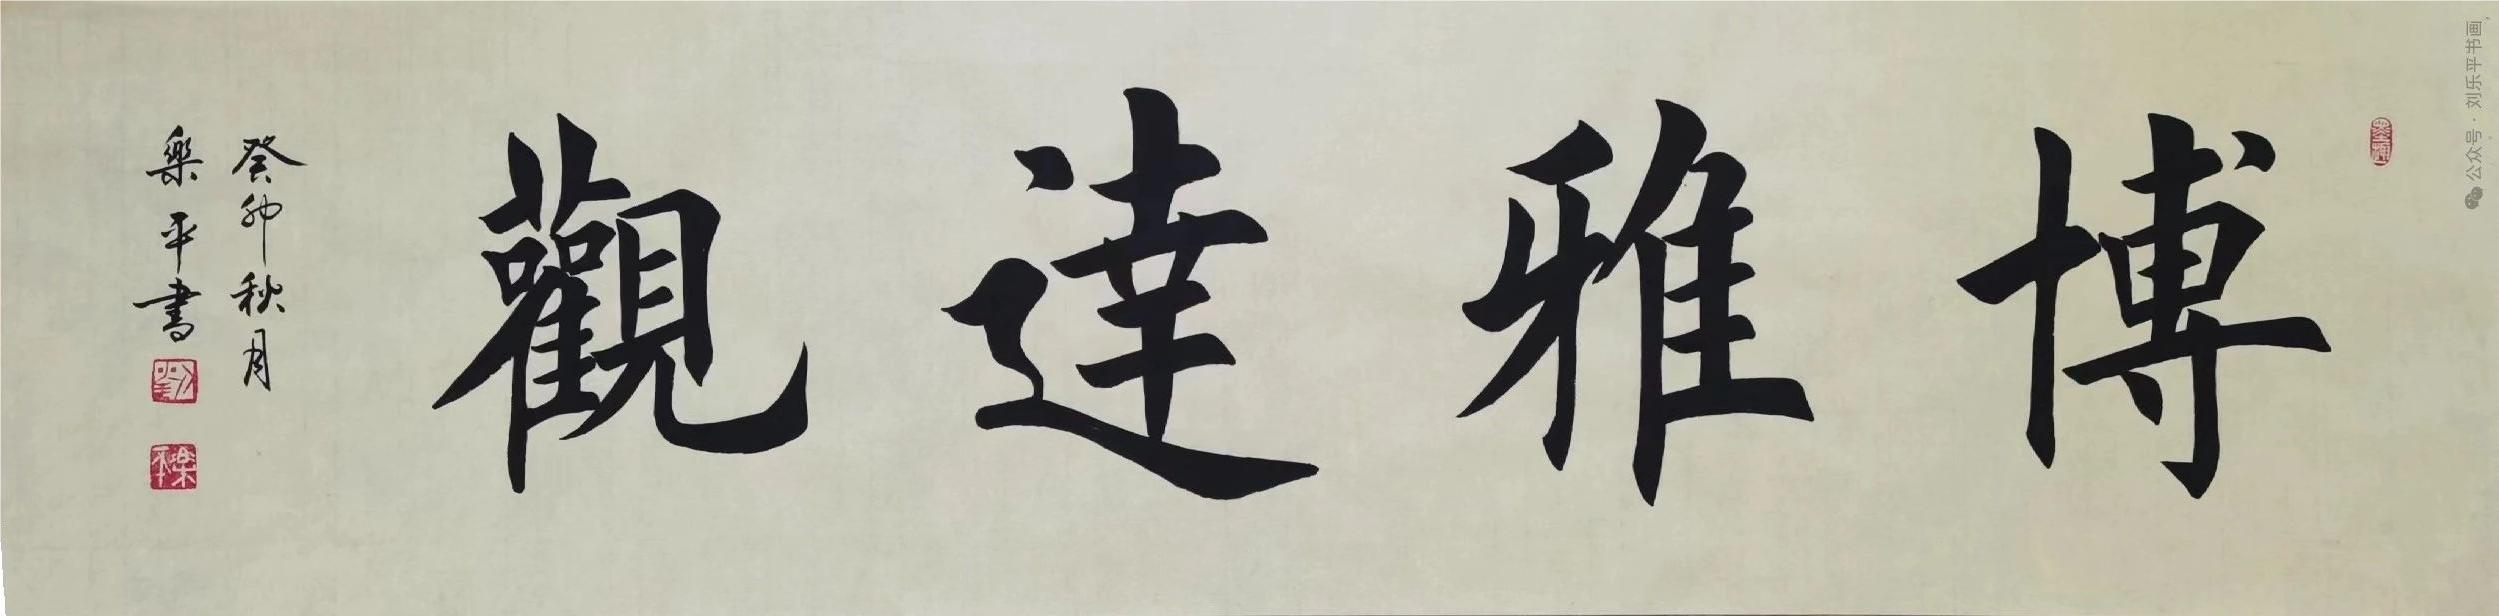 博雅達觀
癸卯秋月
樂平書
公众号·刘乐平书画